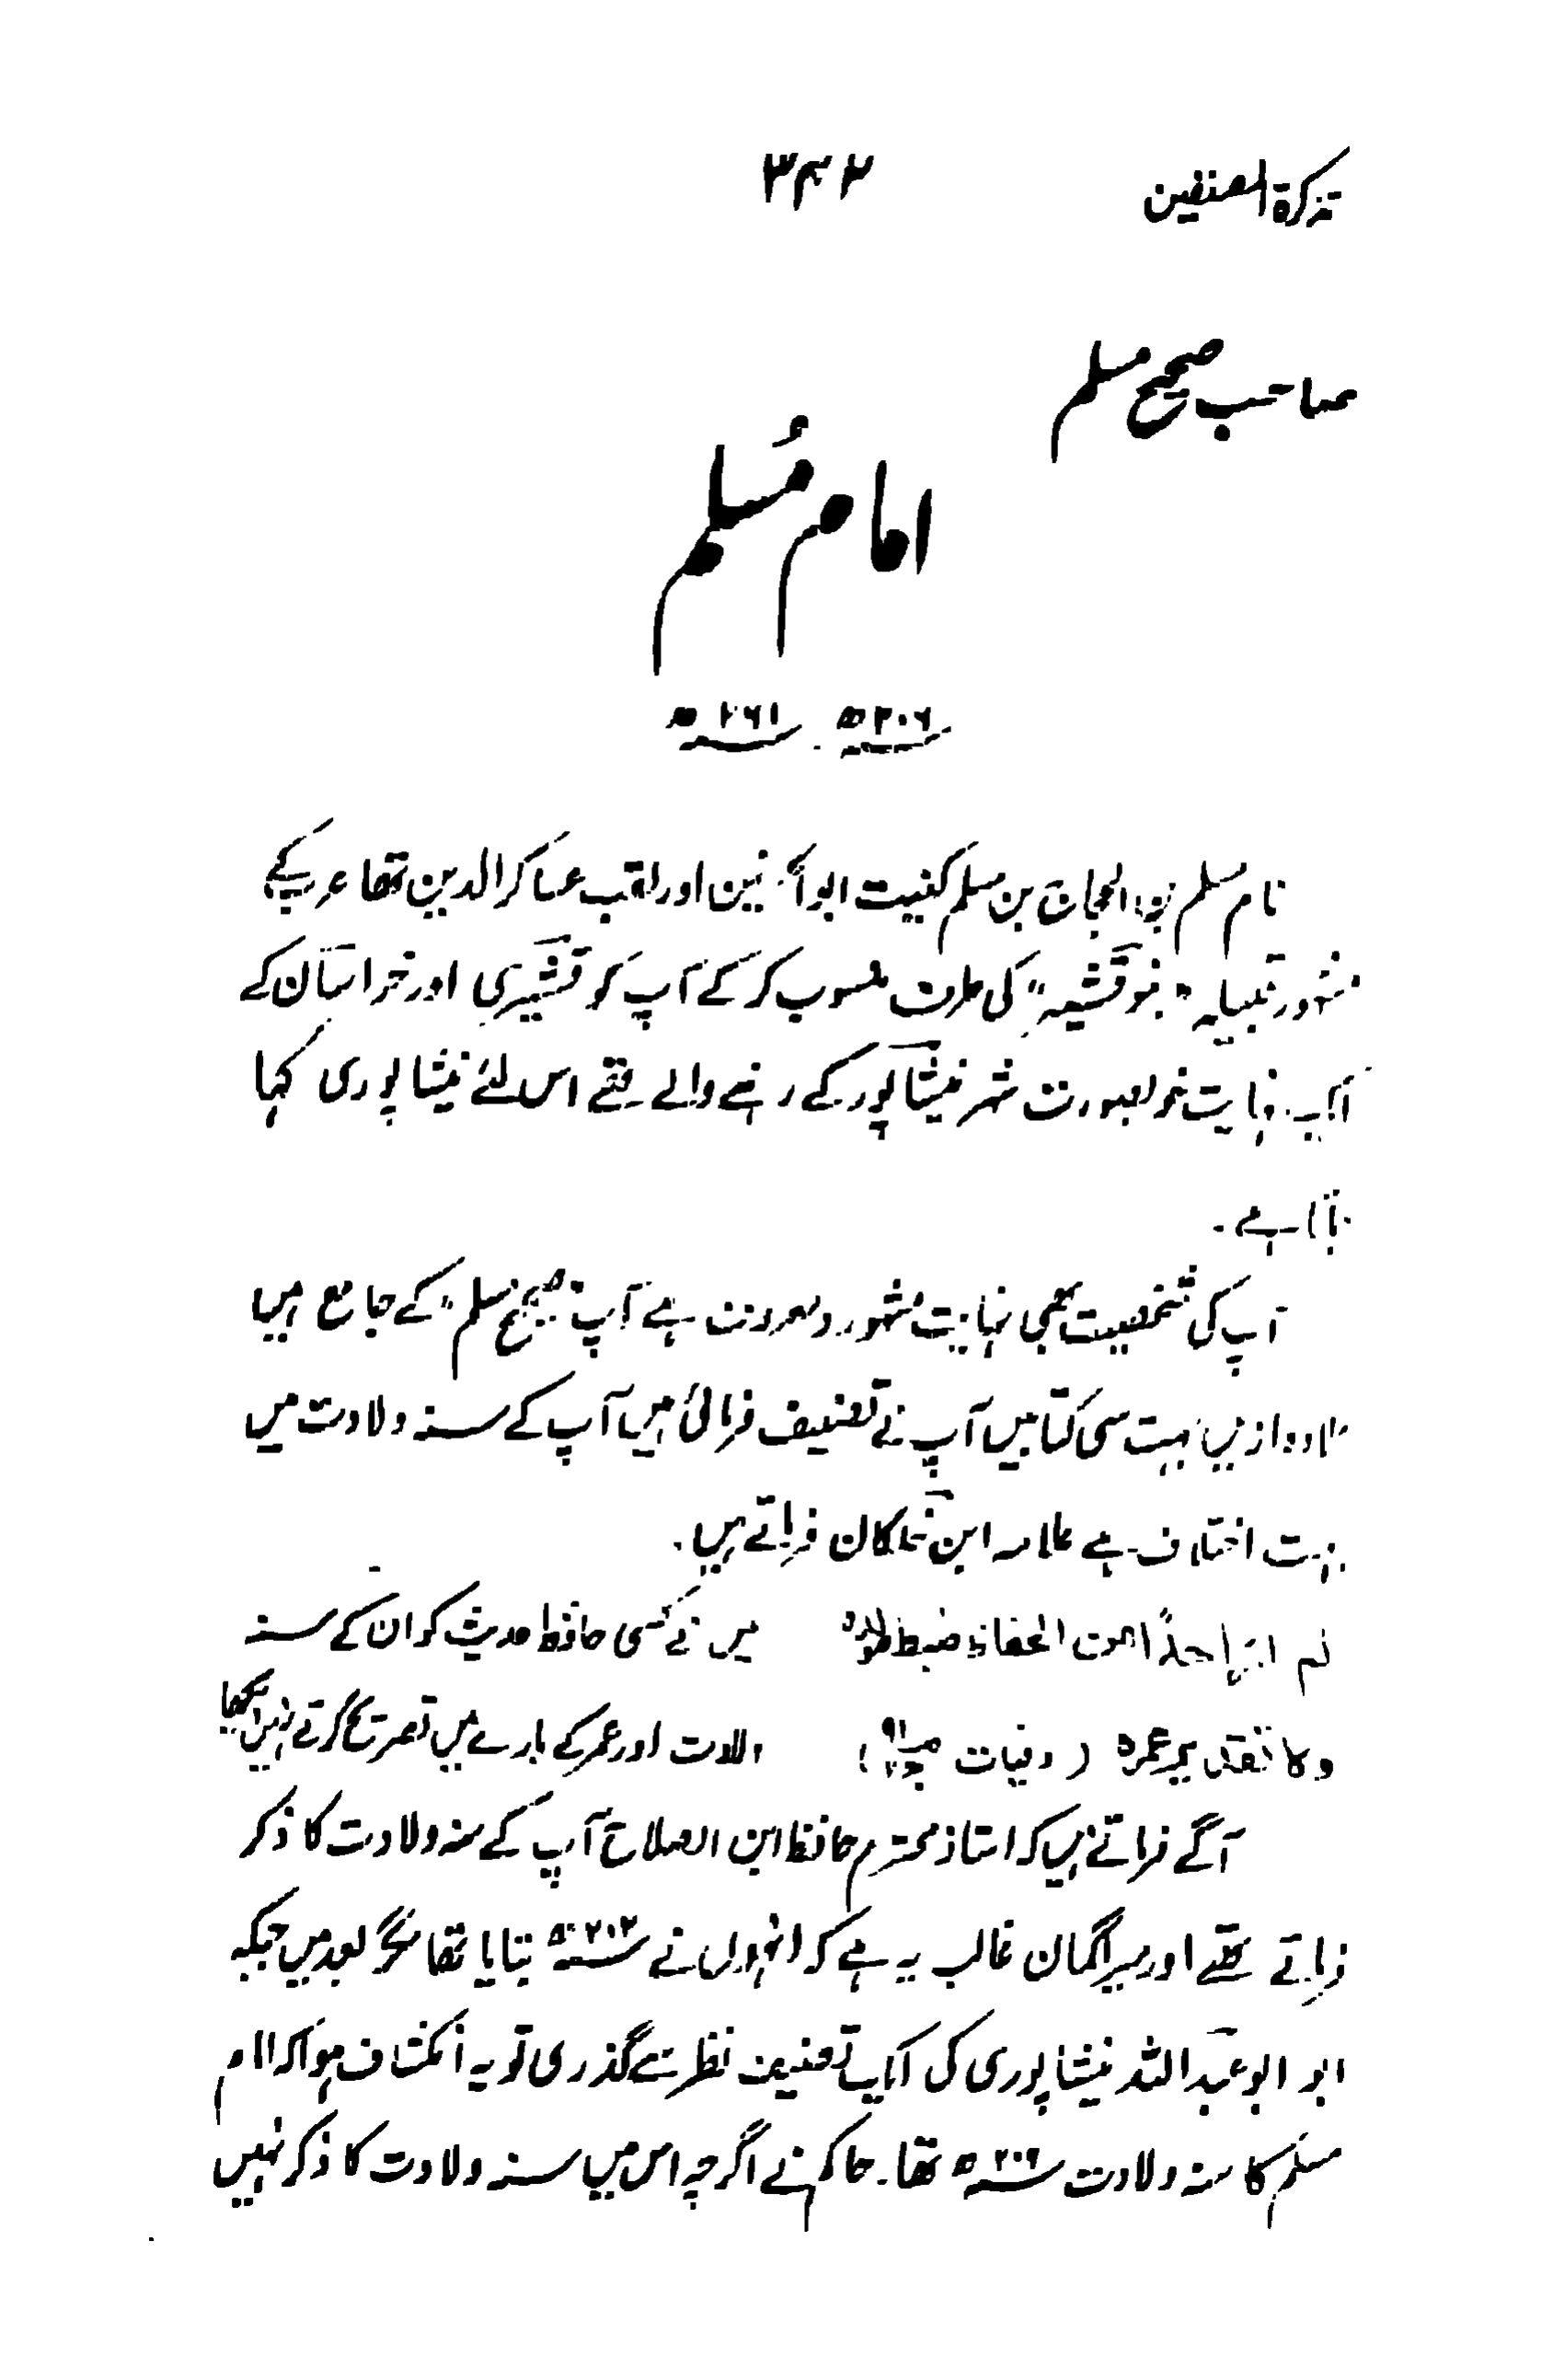 تذکرۃ المصنفین ۳۴۲
صاحب صحیح مسلم
امام مُسلم
۲۰۶ھ ۲۶۱ھ
نام مسلم بن الحجاج بن مسلم کنیت ابو الحسین اور لقب عساکر الدین تھا عرب کے
مشہور قبیلہ "بنو قشیر" کی طرف منسوب کر کے آپ کو قشیری اور خراسان کے
ایک نہایت خوبصورت شہر نیشاپور کے رہنے والے تھے اس لئے نیشاپوری کہا
جاتا ہے۔
آپ کی شخصیت بھی نہایت مشہور و معروف ہے آپ "صحیح مسلم" کے جامع ہیں
علاوہ ازیں بہت سی کتابیں آپ نے تصنیف فرمائی ہیں آپ کے سنہ ولادت میں
بہت اختلاف ہے علامہ ابن خلکان فرماتے ہیں۔
لم ار احداً من الحفاظ ضبط مولدہ میں نے کسی حافظ حدیث کو ان کے سنہ
و لا تقدیر عمرہ (وفیات) ولادت اور عمر کے بارے میں تصریح کرتے نہیں دیکھا
آگے فرماتے ہیں کہ استاذ محترم حافظ ابن الصلاح آپ کے سنہ ولادت کا ذکر
فرماتے تھے اور میرا گمان غالب یہ ہے کہ انہوں نے ۲۰۲ھ بتایا تھا مگر بعد میں جبکہ
ابو ابو عبداللہ نیشاپوری کی ایک تصنیف نظر سے گذری تو یہ انکشاف ہوا کہ امام
مسلم کا سنہ ولادت ۲۰۶ھ تھا۔ حاکم نے اگرچہ اس میں سنہ ولادت کا ذکر نہیں